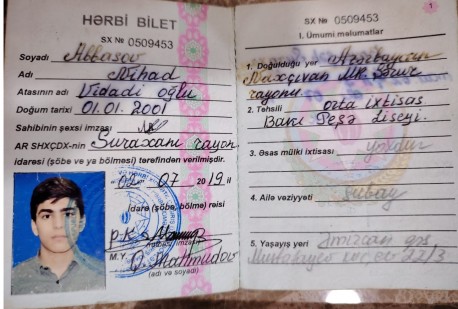 HƏRBİ BİLET
SX № 0509453
Soyadı Abbasov
Adı Nihad
Atasının adı Vidadi oğlu
Doğum tarixi 01.01.2001
Sahibinin şəxsi imzası
AR SHXÇDX-nin Suraxanı rayon
idarəsi (şöbə və ya bölməsi) tərəfindən verilmişdir.
07 2019 il
idarə (şöbə, bölmə) rəisi
(rütbəsi, imzası)
M.Y. Q. Mahmudov
(adı və soyadı)
1
SX № 0509453
I. Ümumi məlumatlar
1. Doğulduğu yer Azərbaycan
Naxçıvan MR
rayonu
2. Təhsili orta ixtisas
Bakı Peşə Liseyi
3. Əsas mülki ixtisası yoxdur
4. Ailə vəziyyəti subay
5. Yaşayış yeri Əmircan qəs,
22/3